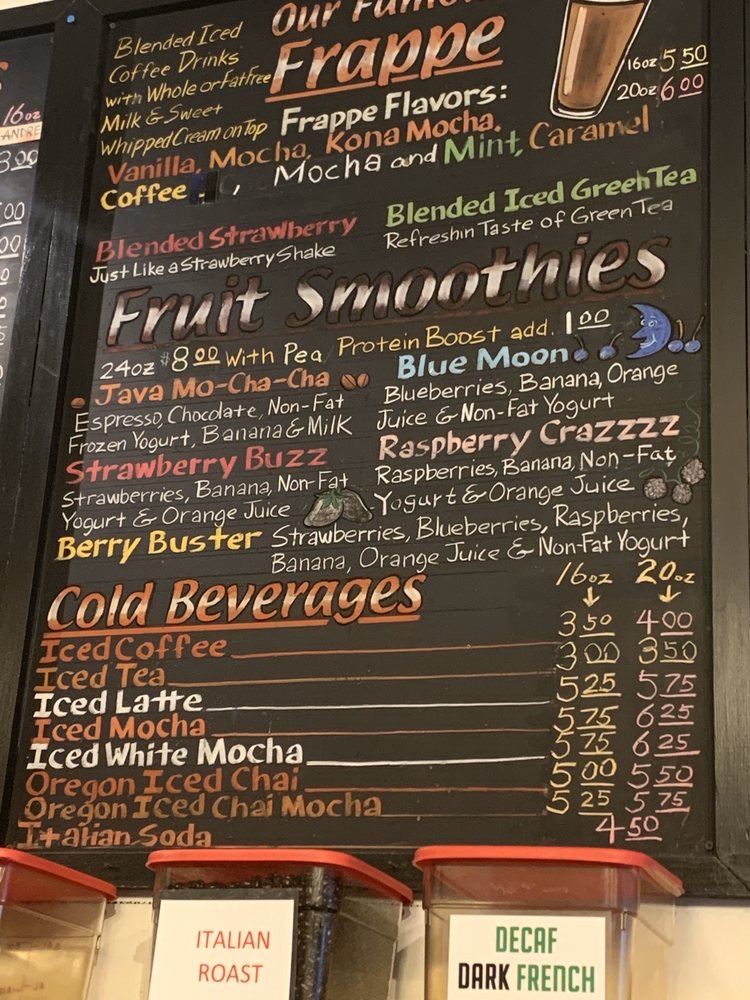 16oz
ANDRE
Our
Frappe
Blended Iced
Coffee Drinks
with Whole or Fat Free
Milk & Sweet
Whipped Cream on Top
16oz 5.50
20oz 6.00
Frappe Flavors:
Vanilla, Mocha, Kona Mocha,
Coffee, Mocha and Mint, Caramel
Blended Strawberry
Just Like a Strawberry Shake
Blended Iced Green Tea
Refreshin Taste of Green Tea
Fruit Smoothies
24oz $8.00 With Pea Protein Boost add. 1.00
Java Mo-Cha-Cha
Espresso, Chocolate, Non-Fat
Frozen Yogurt, Banana & Milk
Blue Moon
Blueberries, Banana, Orange
Juice & Non-Fat Yogurt
Strawberry Buzz
Strawberries, Banana, Non-Fat
Yogurt & Orange Juice
Raspberry Crazzzz
Raspberries, Banana, Non-Fat,
Yogurt & Orange Juice
Berry Buster Strawberries, Blueberries, Raspberries,
Banana, Orange Juice & Non-Fat Yogurt
Cold Beverages 16oz 20oz
Iced Coffee 3.50 4.00
Iced Tea 3.00 3.50
Iced Latte 5.25 5.75
Iced Mocha 5.75 6.25
Iced White Mocha 5.75 6.25
Oregon Iced Chai 5.00 5.50
Oregon Iced Chai Mocha 5.25 5.75
Italian Soda 4.50
ITALIAN
ROAST
DECAF
DARK FRENCH